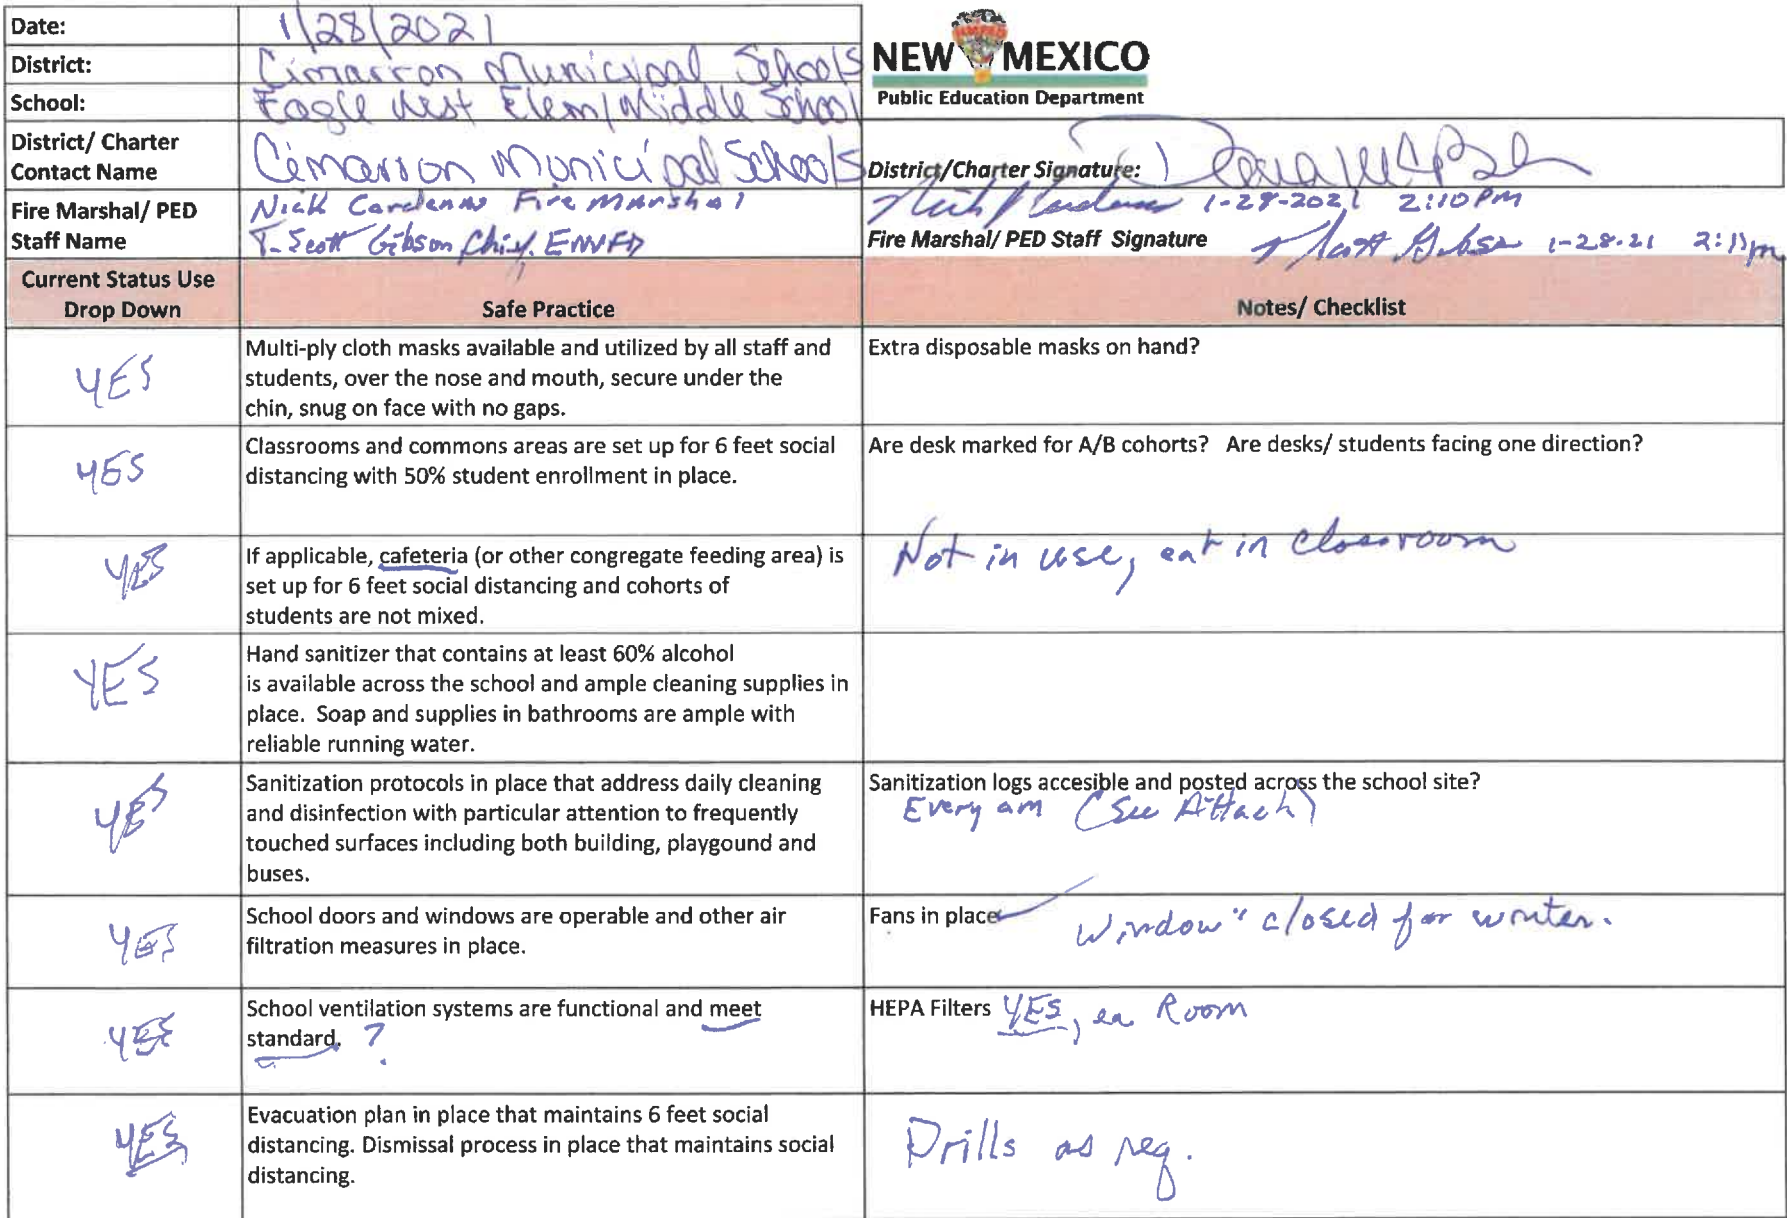 Date: 1/28/2021
District: Cimarron Municipal Schools
School: Eagle Nest Elem/Middle School
NEW MEXICO
Public Education Department
District/ Charter
Contact Name
Cimarron Municipal Schools
District/Charter Signature:
Fire Marshal/ PED
Staff Name
Nick Cardenas Fire Marshal
T. Scott Gibson Chief, ENFD
1-28-2021 2:10 PM
Fire Marshal/ PED Staff Signature 1-28-21 2:11pm
Current Status Use
Drop Down
Safe Practice
Notes/ Checklist
YES
Multi-ply cloth masks available and utilized by all staff and
students, over the nose and mouth, secure under the
chin, snug on face with no gaps.
Extra disposable masks on hand?
YES
Classrooms and commons areas are set up for 6 feet social
distancing with 50% student enrollment in place.
Are desk marked for A/B cohorts? Are desks/ students facing one direction?
YES
If applicable, cafeteria (or other congregate feeding area) is
set up for 6 feet social distancing and cohorts of
students are not mixed.
Not in use, eat in classroom
YES
Hand sanitizer that contains at least 60% alcohol
is available across the school and ample cleaning supplies in
place. Soap and supplies in bathrooms are ample with
reliable running water.
YES
Sanitization protocols in place that address daily cleaning
and disinfection with particular attention to frequently
touched surfaces including both building, playgound and
buses.
Sanitization logs accesible and posted across the school site?
Every am (See Attach)
YES
School doors and windows are operable and other air
filtration measures in place.
Fans in place Window" closed for winter.
YES
School ventilation systems are functional and meet
standard. ?
HEPA Filters YES, ea Room
YES
Evacuation plan in place that maintains 6 feet social
distancing. Dismissal process in place that maintains social
distancing.
Drills as req.